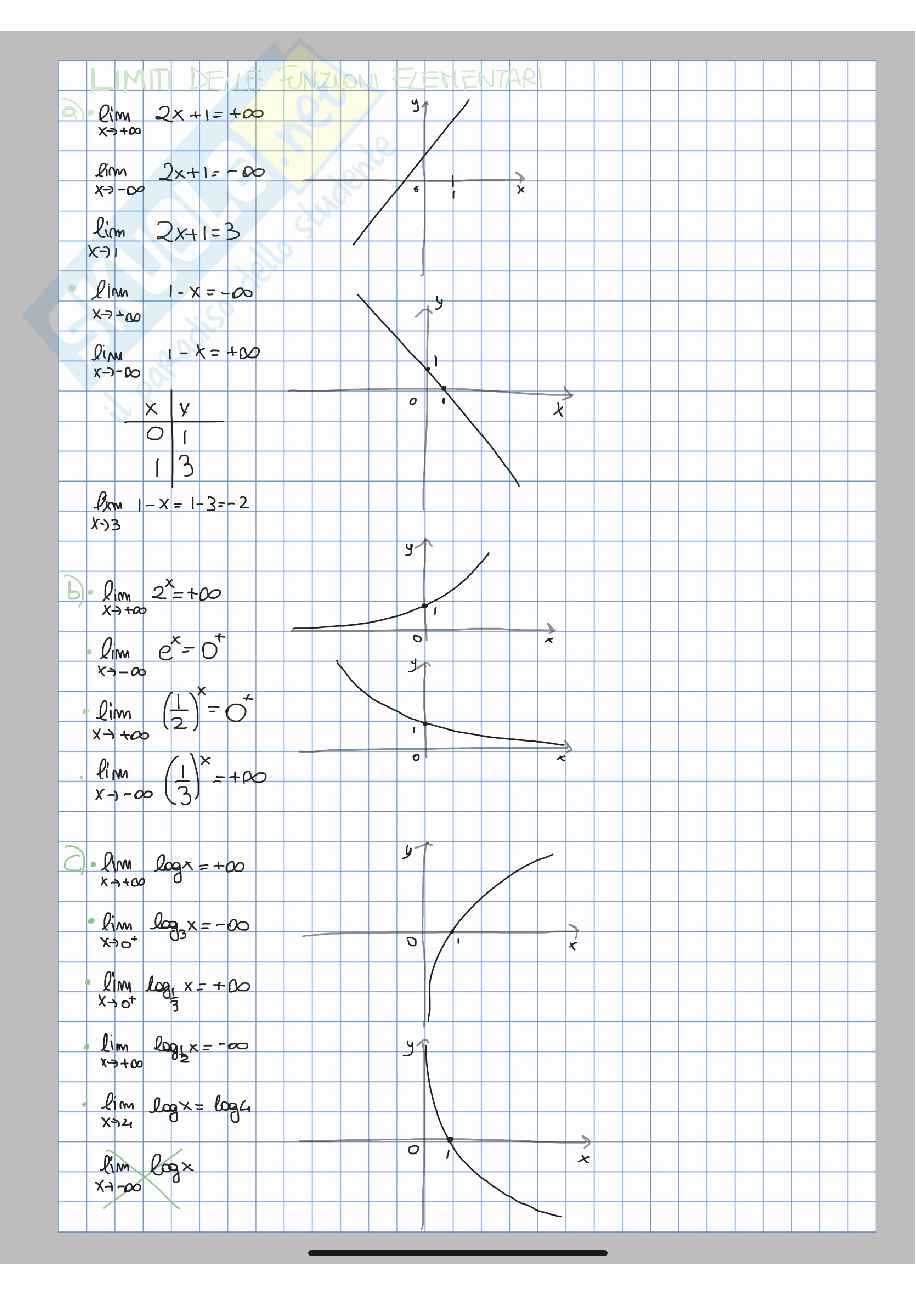 LIMITI DELLE FUNZIONI ELEMENTARI
a) • lim x→+∞ 2x+1=+∞
lim x→-∞ 2x+1=-∞
lim x→1 2x+1=3
y
0 1 x
• lim x→+∞ 1-x=-∞
lim x→-∞ 1-x=+∞
x y
0 1
1 3
lim x→3 1-x=1-3=-2
y
1
0 1 x
b) • lim x→+∞ 2^x=+∞
• lim x→-∞ e^x=0^+
• lim x→+∞ (1/2)^x=0^+
• lim x→-∞ (1/3)^x=+∞
y
1
0 x
y
1
0 x
c) • lim x→+∞ log x=+∞
• lim x→0^+ log_3 x=-∞
• lim x→0^+ log_1/3 x=+∞
• lim x→+∞ log_1/2 x=-∞
• lim x→4 log x=log 4
lim x→-∞ log x
y
0 1 x
y
0 1 x
SKUOLA.net
il paradiso dello studente